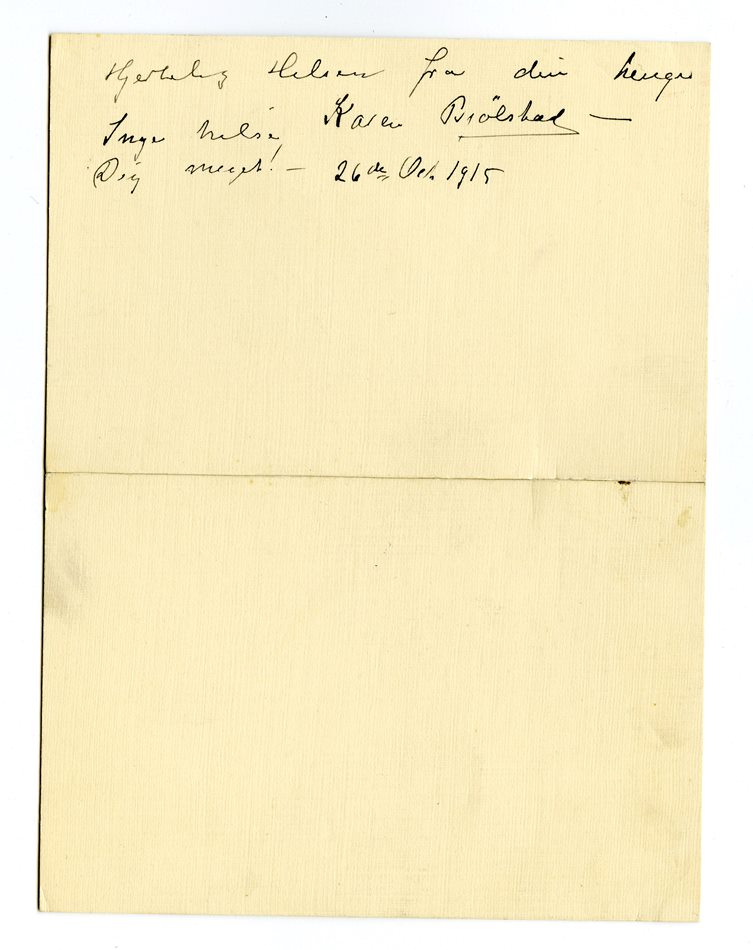 Hjertelig Hilsen fra din hengivne
Inga hilser Karen Bjölstad —
Dig meget! — 26de Oct. 1915